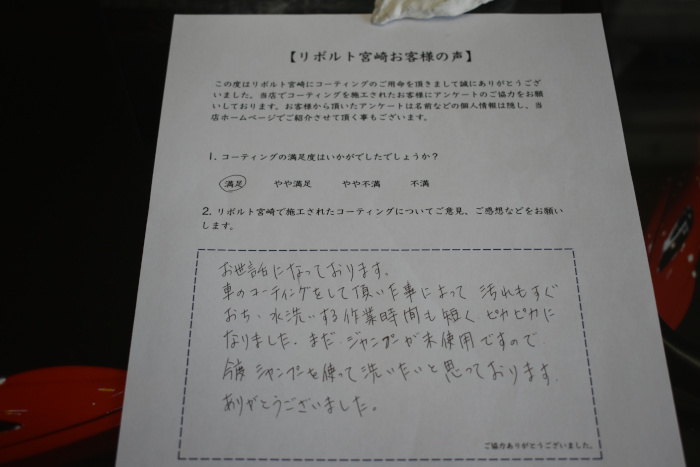 【リボルト宮崎お客様の声】
この度はリボルト宮崎にコーティングのご用命を頂きまして誠にありがとうござ
いました。当店でコーティングを施工されたお客様にアンケートのご協力をお願
いしております。お客様から頂いたアンケートは名前などの個人情報は隠し、当
店ホームページでご紹介させて頂く事もございます。
1. コーティングの満足度はいかがでしたでしょうか？
満足 やや満足 やや不満 不満
2. リボルト宮崎で施工されたコーティングについてご意見、ご感想などをお願い
します。
お世話になっております。
車のコーティングをして頂いた事によって 汚れもすぐ
おち、水洗いする作業時間も短く、ピカピカに
なりました。まだ、シャンプーが未使用ですので、
今後 シャンプーを使って洗いたいと思っております。
ありがとうございました。
ご協力ありがとうございました。